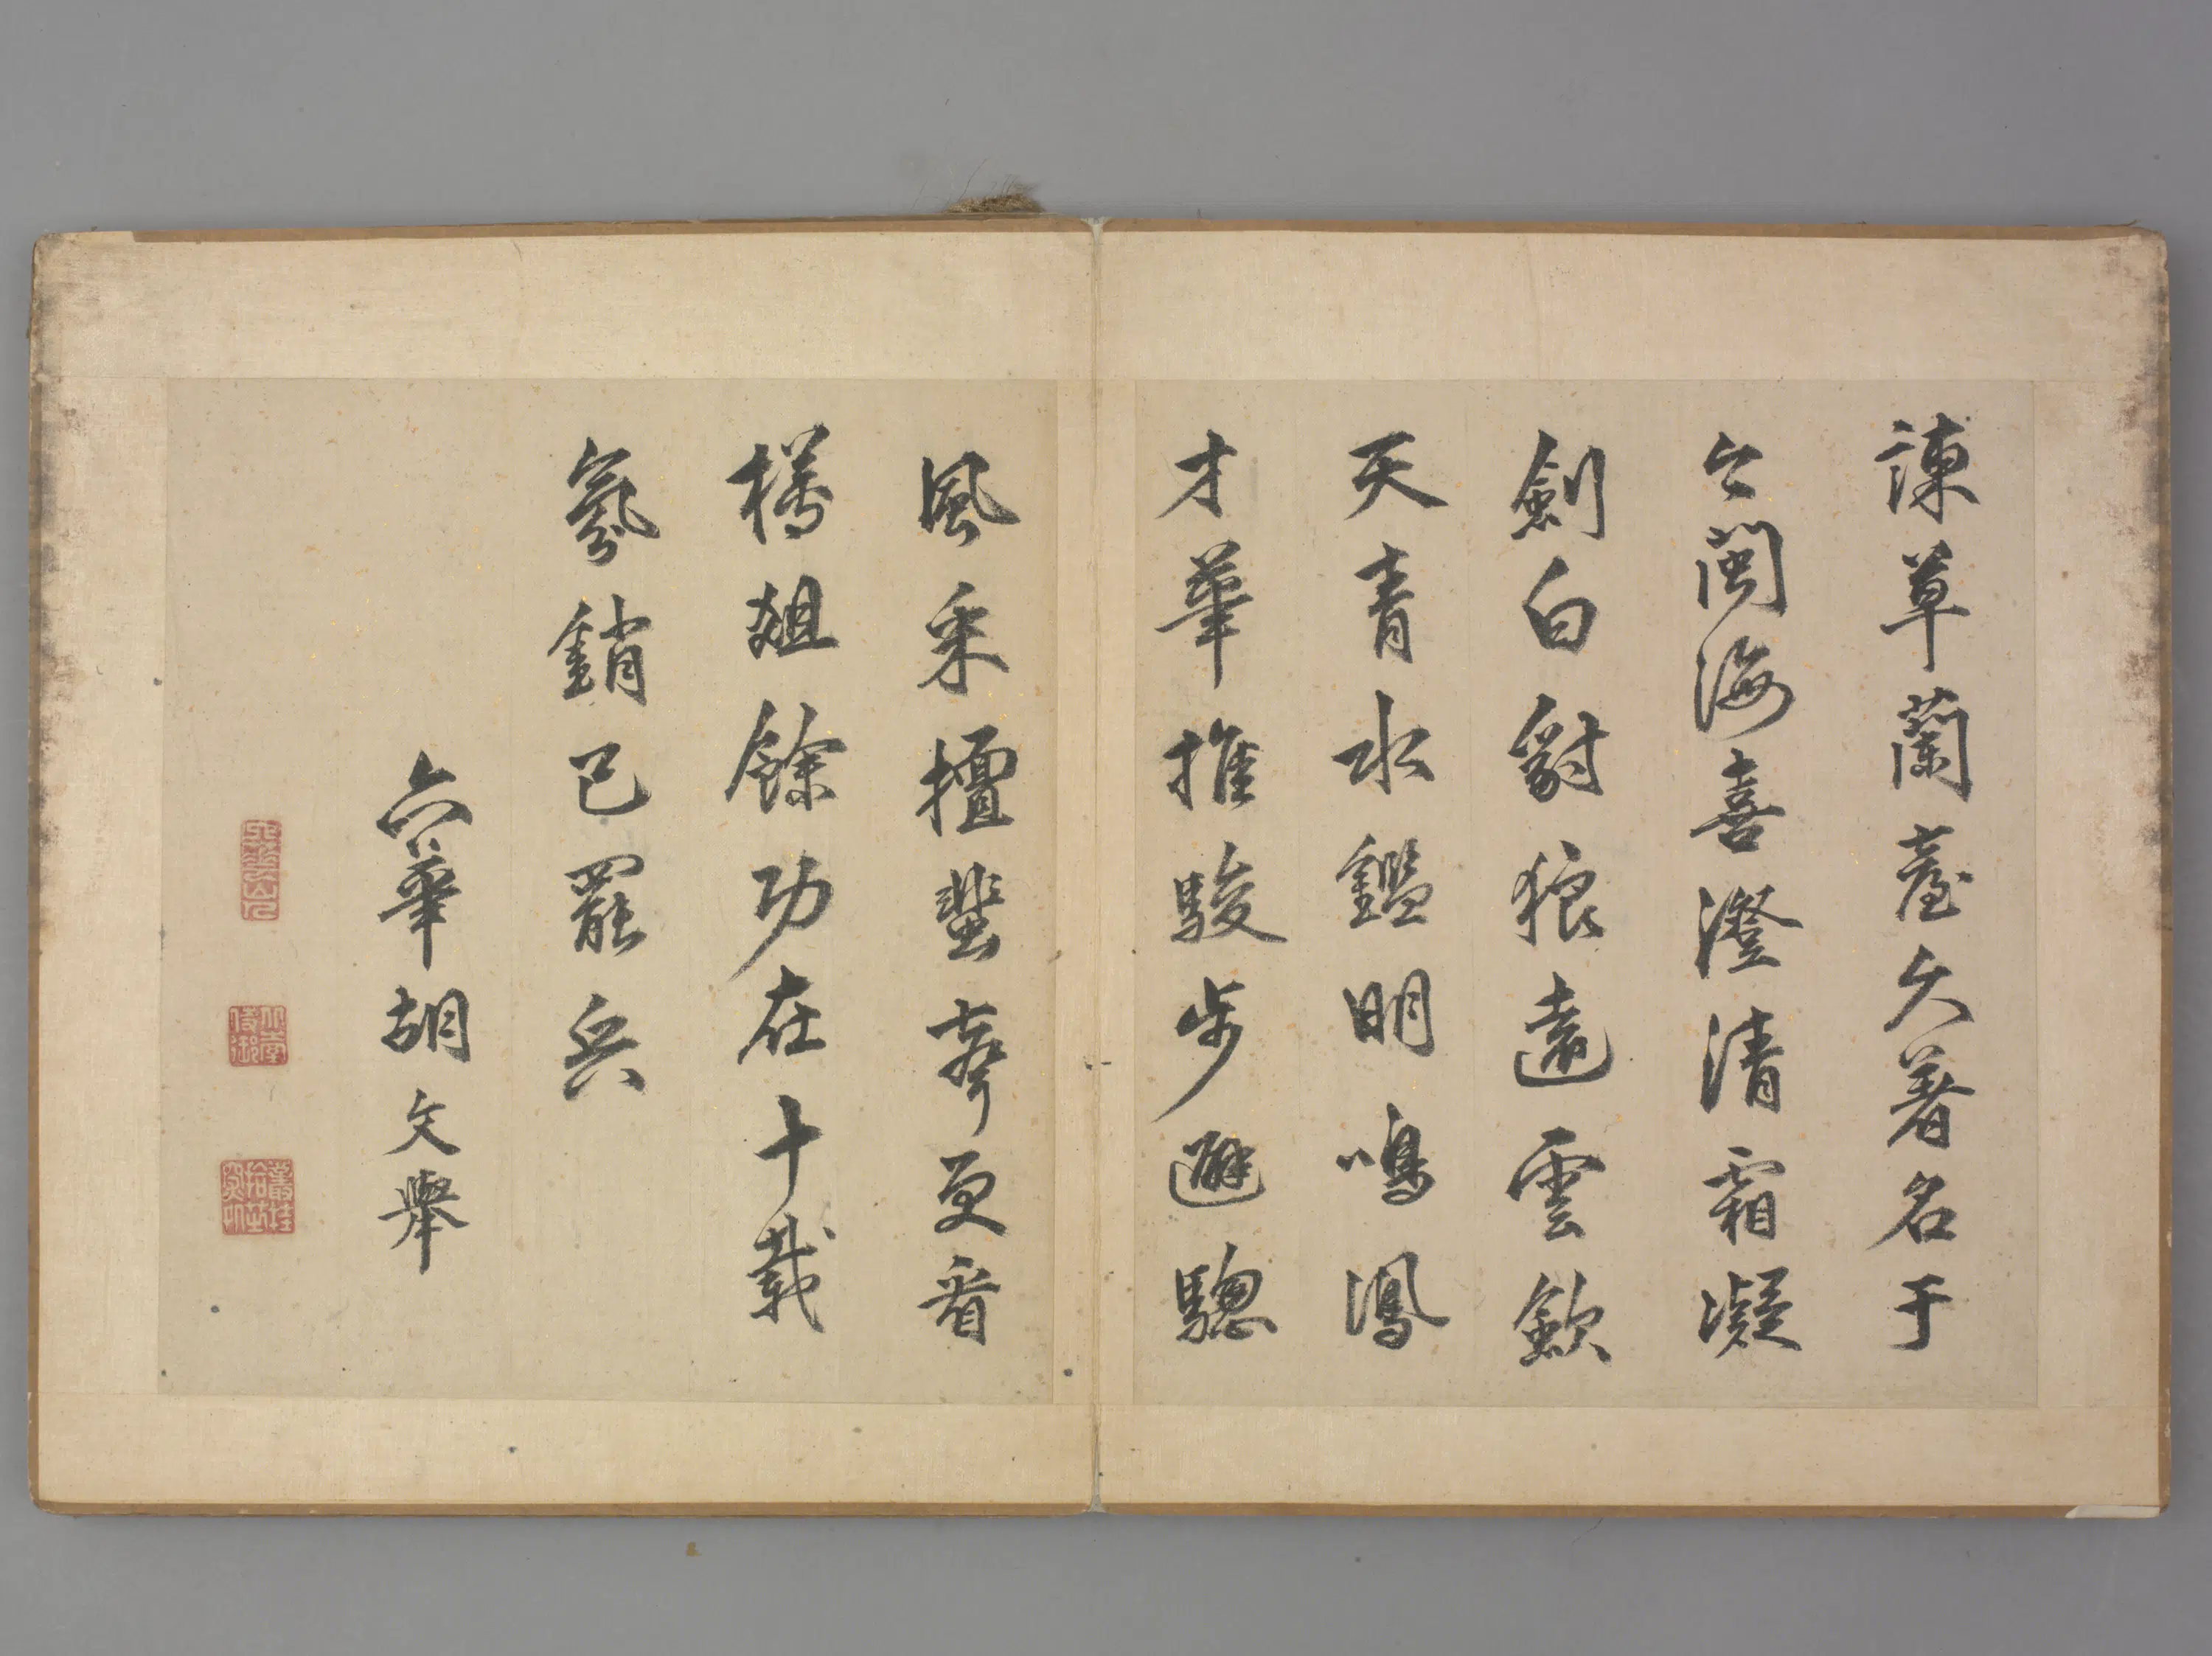 諫草蘭臺久著名于
今閩海喜澄清霜凝
劍白豺狼遠雲歛
天青水鑑明鳴鳳
才華推駿步避驄
風采擅蜚聲更看
樽俎餘功在十載
氛銷已罷兵
六華胡文舉